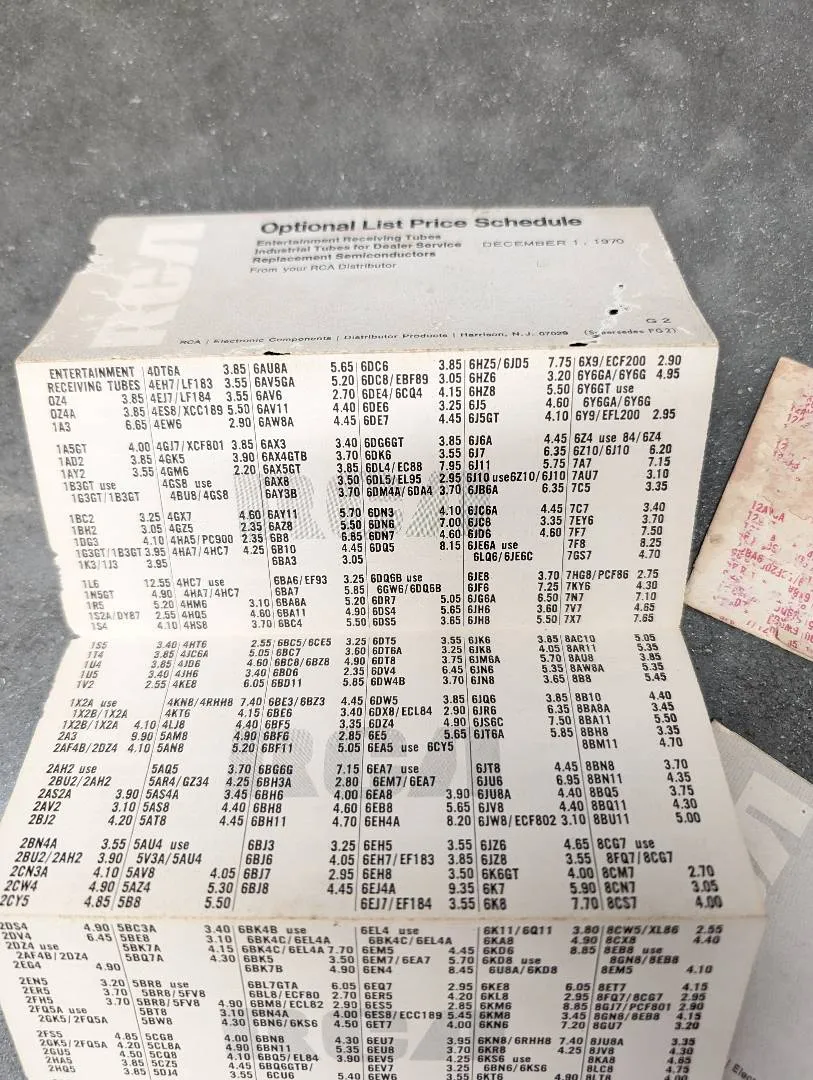 RCA
Optional List Price Schedule
Entertainment Receiving Tubes
Industrial Tubes for Dealer Service
Replacement Semiconductors
DECEMBER 1, 1970
From your RCA Distributor
G 2
RCA / Electronic Components / Distributor Products / Harrison, N.J. 07029 (Supersedes PG2)
ENTERTAINMENT
RECEIVING TUBES
0Z4 3.85
0Z4A 3.85
1A3 6.65
1A5GT 4.00
1AD2 3.85
1AY2 3.55
1B3GT use
1G3GT/1B3GT
1BC2 3.25
1BH2 3.05
1DG3 4.10
1G3GT/1B3GT 3.95
1K3/1J3 3.95
1L6 12.55
1N5GT 4.90
1R5 5.20
1S2A/DY87 2.55
1S4 4.10
1S5 3.40
1T4 3.85
1U4 3.85
1U5 3.40
1V2 2.55
1X2A use
1X2B/1X2A
1X2B/1X2A 4.10
2A3 9.90
2AF4B/2DZ4 4.10
2AH2 use
2BU2/2AH2
2AS2A 3.90
2AV2 3.10
2BJ2 4.20
2BN4A 3.55
2BU2/2AH2 3.90
2CN3A 4.10
2CW4 4.90
2CY5 4.85
2DS4 4.90
2DV4 6.45
2DZ4 use
2AF4B/2DZ4
2EG4 4.90
2EN5 3.20
2ER5 3.70
2FH5 3.70
2FQ5A use
2GK5/2FQ5A
2FS5 4.85
2GK5/2FQ5A 4.20
2GU5 4.50
2HA5 3.85
2HQ5 3.85
4DT6A 3.85
4EH7/LF183 3.55
4EJ7/LF184 3.55
4ES8/XCC189 5.50
4EW6 2.90
4GJ7/XCF801 3.85
4GK5 3.90
4GM6 2.20
4GS8 use
4BU8/4GS8
4GX7 4.60
4GZ5 2.35
4HA5/PC900 2.35
4HA7/4HC7 4.25
4HC7 use
4HA7/4HC7
4HM6 3.10
4HQ5 4.60
4HS8 3.70
4HT6 2.55
4JC6A 5.05
4JD6 4.60
4JH6 3.40
4KE8 6.05
4KN8/4RHH8 7.40
4KT6 4.15
4LJ8 4.40
5AM8 4.90
5AN8 5.20
5AQ5 3.70
5AR4/GZ34 4.25
5AS4A 3.45
5AS8 4.40
5AT8 4.45
5AU4 use
5V3A/5AU4
5AV8 4.05
5AZ4 5.30
5B8 5.50
5BC3A 3.40
5BE8 3.10
5BK7A 4.15
5BQ7A 4.30
5BR8 use
5BR8/5FV8
5BR8/5FV8 4.90
5BT8 3.10
5BW8 4.30
5CG8 4.00
5CL8A 4.90
5CQ8 4.10
5CZ5 4.15
5DJ4 3.55
6AU8A 5.65
6AV5GA 5.20
6AV6 2.70
6AV11 4.40
6AW8A 4.45
6AX3 3.40
6AX4GTB 3.70
6AX5GT 3.85
6AX8 3.50
6AY3B 3.70
6AY11 5.70
6AZ8 5.50
6B8 6.85
6B10 4.45
6BA3 3.05
6BA6/EF93 3.25
6BA7 5.85
6BA8A 5.20
6BA11 4.90
6BC4 5.50
6BC5/6CE5 3.25
6BC7 3.60
6BC8/6BZ8 4.90
6BD6 2.35
6BD11 5.85
6BE3/6BZ3 4.45
6BE6 3.40
6BF5 3.35
6BF6 2.85
6BF11 5.05
6BG6G 7.15
6BH3A 2.80
6BH6 4.00
6BH8 4.60
6BH11 4.70
6BJ3 3.25
6BJ6 4.05
6BJ7 2.95
6BJ8 4.45
6BK4B use
6BK4C/6EL4A
6BK4C/6EL4A 7.70
6BK5 3.50
6BK7B 4.90
6BL7GTA 6.05
6BL8/ECF80 2.70
6BM8/ECL82 2.90
6BN4A 4.00
6BN6/6KS6 4.50
6BN8 4.30
6BN11 5.35
6BQ5/EL84 3.90
6BQ6GTB/
6CU6 5.40
6DC6 3.85
6DC8/EBF89 3.05
6DE4/6CQ4 4.15
6DE6 3.25
6DE7 4.45
6DG6GT 3.85
6DK6 3.55
6DL4/EC88 7.95
6DL5/EL95 2.95
6DM4A/6DA4 3.70
6DN3 4.10
6DN6 7.00
6DN7 4.60
6DQ5 8.15
6DQ6B use
6GW6/6DQ6B
6DR7 5.05
6DS4 5.45
6DS5 3.65
6DT5 3.55
6DT6A 3.25
6DT8 3.75
6DV4 6.45
6DW4B 3.70
6DW5 3.85
6DX8/ECL84 2.90
6DZ4 4.90
6E5 5.65
6EA5 use 6CY5
6EA7 use
6EM7/6EA7
6EA8 3.90
6EB8 5.65
6EH4A 8.20
6EH5 3.55
6EH7/EF183 3.85
6EH8 3.50
6EJ4A 9.35
6EJ7/EF184 3.55
6EL4 use
6BK4C/6EL4A
6EM5 4.45
6EM7/6EA7 5.70
6EN4 8.45
6EQ7 2.95
6ER5 4.20
6ES5 2.85
6ES8/ECC189 5.45
6ET7 4.00
6EU7 3.95
6EU8 3.70
6EV5 4.25
6EV7 3.25
6EW6 2.90
6HZ5/6JD5 7.75
6HZ6 3.20
6HZ8 5.50
6J5 4.45
6J5GT 4.10
6J6A 4.45
6J7 6.35
6J11 5.75
6J10 use6Z10/6J10
6JB6A 6.35
6JC6A 4.45
6JC8 3.35
6JD6 4.60
6JE6A use
6LQ6/6JE6C
6JE8 3.70
6JF6 7.25
6JG6A 6.50
6JH6 3.60
6JH8 5.50
6JK6 3.85
6JK8 4.05
6JM6A 5.70
6JN6 5.35
6JN8 3.65
6JQ6 3.85
6JR6 6.35
6JS6C 7.50
6JT6A 5.85
6JT8 4.45
6JU6 6.95
6JU8A 4.40
6JV8 4.40
6JW8/ECF802 3.10
6JZ6 4.65
6JZ8 3.55
6K6GT 4.00
6K7 5.90
6K8 7.70
6K11/6Q11 3.80
6KA8 4.90
6KD6 8.85
6KD8 use
6U8A/6KD8
6KE8 6.05
6KL8 2.95
6KM6 8.85
6KM8 3.45
6KN6 7.20
6KN8/6RHH8 7.40
6KR8 4.25
6KS6 use
6BN6/6KS6
6KT6 4.90
6X9/ECF200 2.90
6Y6GA/6Y6G 4.95
6Y6GT use
6Y6GA/6Y6G
6Y9/EFL200 2.95
6Z4 use 84/6Z4
6Z10/6J10 6.20
7A7 7.15
7AU7 3.10
7C5 3.35
7C7 3.40
7EY6 3.70
7F7 5.50
7F8 8.25
7GS7 4.70
7HG8/PCF86 2.75
7KY6 4.30
7N7 7.10
7V7 4.65
7X7 7.65
8AC10 5.05
8AR11 5.35
8AU8 3.85
8AW8A 5.35
8B8 5.45
8B10 4.40
8BA8A 3.45
8BA11 5.50
8BH8 3.35
8BM11 4.70
8BN8 3.70
8BN11 4.35
8BQ5 3.75
8BQ11 4.30
8BU11 5.00
8CG7 use
8FQ7/8CG7
8CM7 2.70
8CN7 3.05
8CS7 4.00
8CW5/XL86 2.55
8CX8 4.40
8EB8 use
8GN8/8EB8
8EM5 4.10
8ET7 4.15
8FQ7/8CG7 2.95
8GJ7/PCF801 2.90
8GN8/8EB8 4.15
8GU7 3.20
8JU8A 3.35
8JV8 4.30
8KA8 4.65
8LC8 4.75
8LT8 4.00